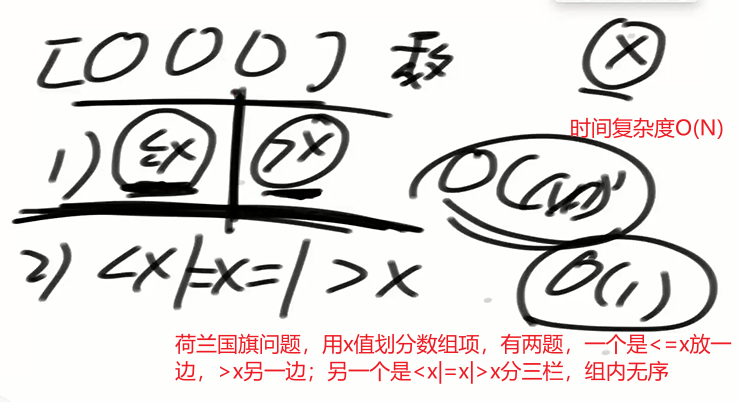 [000] 数 x
时间复杂度O(N)
1) ≤x | >x O(N)
2) <x|=x=|>x O(1)
荷兰国旗问题，用x值划分数组项，有两题，一个是<=x放一
边，>x另一边；另一个是<x|=x|>x分三栏，组内无序